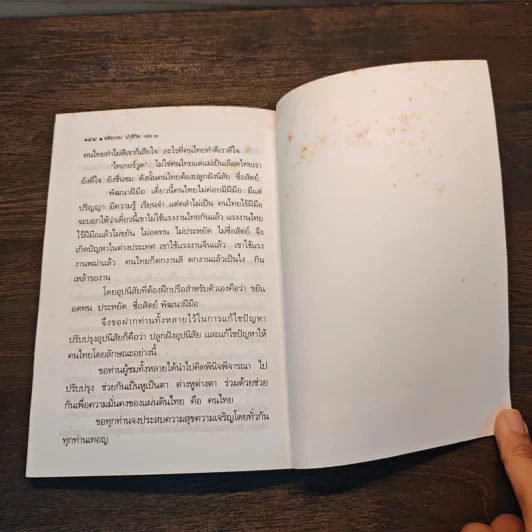 ๑๔๔ ● คติธรรม นำชีวิต เล่ม ๒
คนไทยทำไม่ดีเขาก็เสียใจ อะไรที่คนไทยทำดีเราดีใจ
"ไทเกอร์วูด" ไม่ใช่คนไทยแต่แม่เป็นเลือดไทยเรา
ยังดีใจ ยังชื่นชม ดังนั้นคนไทยต้องปลูกฝังนิสัย ซื่อสัตย์
พัฒนาฝีมือ เดี๋ยวนี้คนไทยไม่ค่อยมีฝีมือ มีแต่
ปริญญา มีความรู้ เรียนจำ แต่คลำไม่เป็น คนไทยไร้ฝีมือ
จะบอกให้ว่าเดี๋ยวนี้เขาไม่ใช้แรงงานไทยกันแล้ว แรงงานไทย
ไร้ฝีมือแล้วไม่ขยัน ไม่อดทน ไม่ประหยัด ไม่ซื่อสัตย์ จึง
เกิดปัญหาในต่างประเทศ เขาใช้แรงงานจีนแล้ว เขาใช้แรง
งานพม่าแล้ว คนไทยก็ตกงานสิ ตกงานแล้วเป็นไง กิน
เหล้ารองาน
โดยอุปนิสัยที่ต้องฝึกปรือสำหรับตัวเองคือว่า ขยัน
อดทน ประหยัด ซื่อสัตย์ พัฒนาฝีมือ
จึงขอฝากท่านทั้งหลายไว้ในการแก้ไขปัญหา
ปรับปรุงอุปนิสัยก็คือว่า ปลูกฝังอุปนิสัย และแก้ไขปัญหาให้
คนไทยโดยลักษณะอย่างนี้
ขอท่านผู้ชมทั้งหลายได้นำไปคิดพินิจพิจารณา ไป
ปรับปรุง ช่วยกันเป็นหูเป็นตา ต่างหูต่างตา ร่วมด้วยช่วย
กันเพื่อความมั่นคงของแผ่นดินไทย คือ คนไทย
ขอทุกท่านจงประสบความสุขความเจริญโดยทั่วกัน
ทุกท่านเทอญ